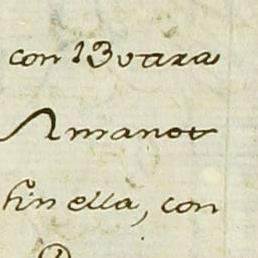 con 13 varas
Amanos
fin ella, con